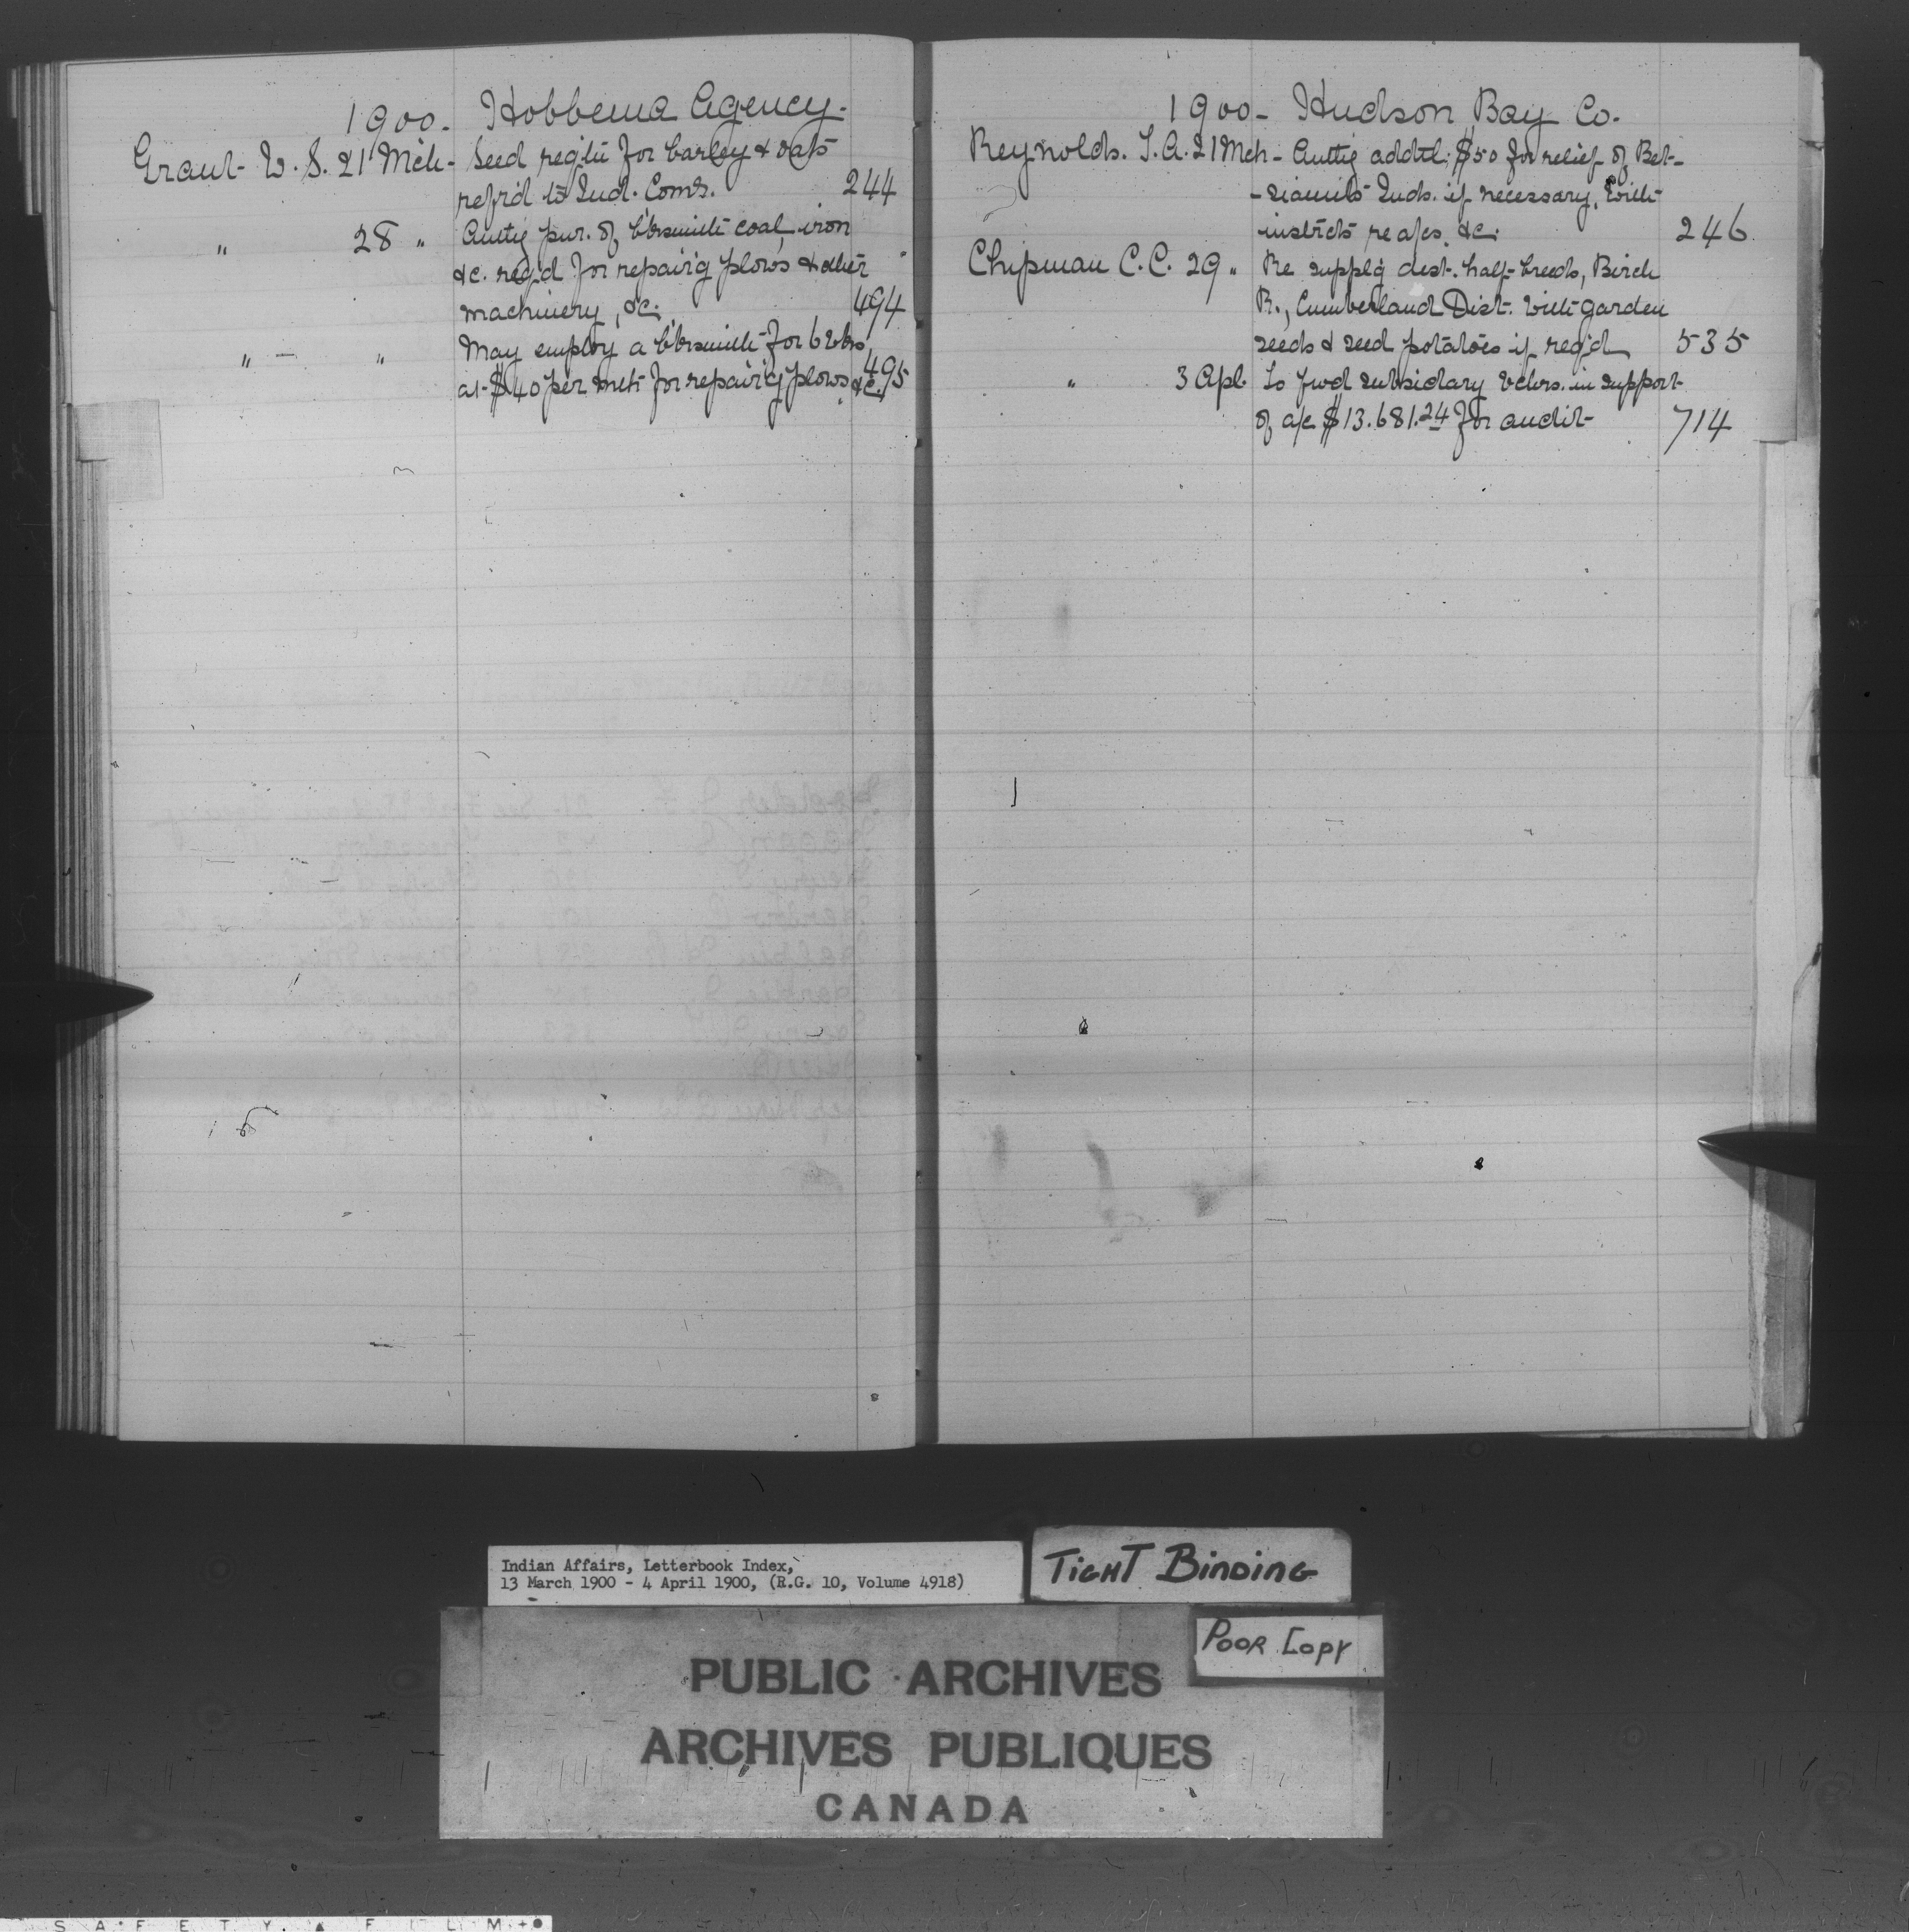 1900. Hobbema Agency.
Grant W. S. 21 Mch. Seed reqd for barley & oats
refrd to Ind. Comr. 244
" 28 " Authy pur. of b'ksmith coal, iron
&c. reqd for repair'g plows & other
machinery, &c. 494
" — " May employ a b'ksmith for 6 wks,
at $40 per mth for repair'g plows, &c. 495
1900 - Hudson Bay Co.
Reynolds. T. A. 21 Mch - Authy addtl. $50 for relief of Bet-
-siamits Inds. if necessary, with
instrcts re a/cs. &c. 246
Chipman C. C. 29 " Re supplg dest. half-breeds, Birch
R., Cumberland Dist. with garden
seeds & seed potatoes if reqd 535
" 3 Apl. To fwd subsidary vchrs. in support
of a/c $13.681.24 for audit 714
Indian Affairs, Letterbook Index,
13 March 1900 - 4 April 1900, (R.G. 10, Volume 4918)
TIGHT BINDING
POOR COPY
PUBLIC ARCHIVES
ARCHIVES PUBLIQUES
CANADA
SAFETY FILM